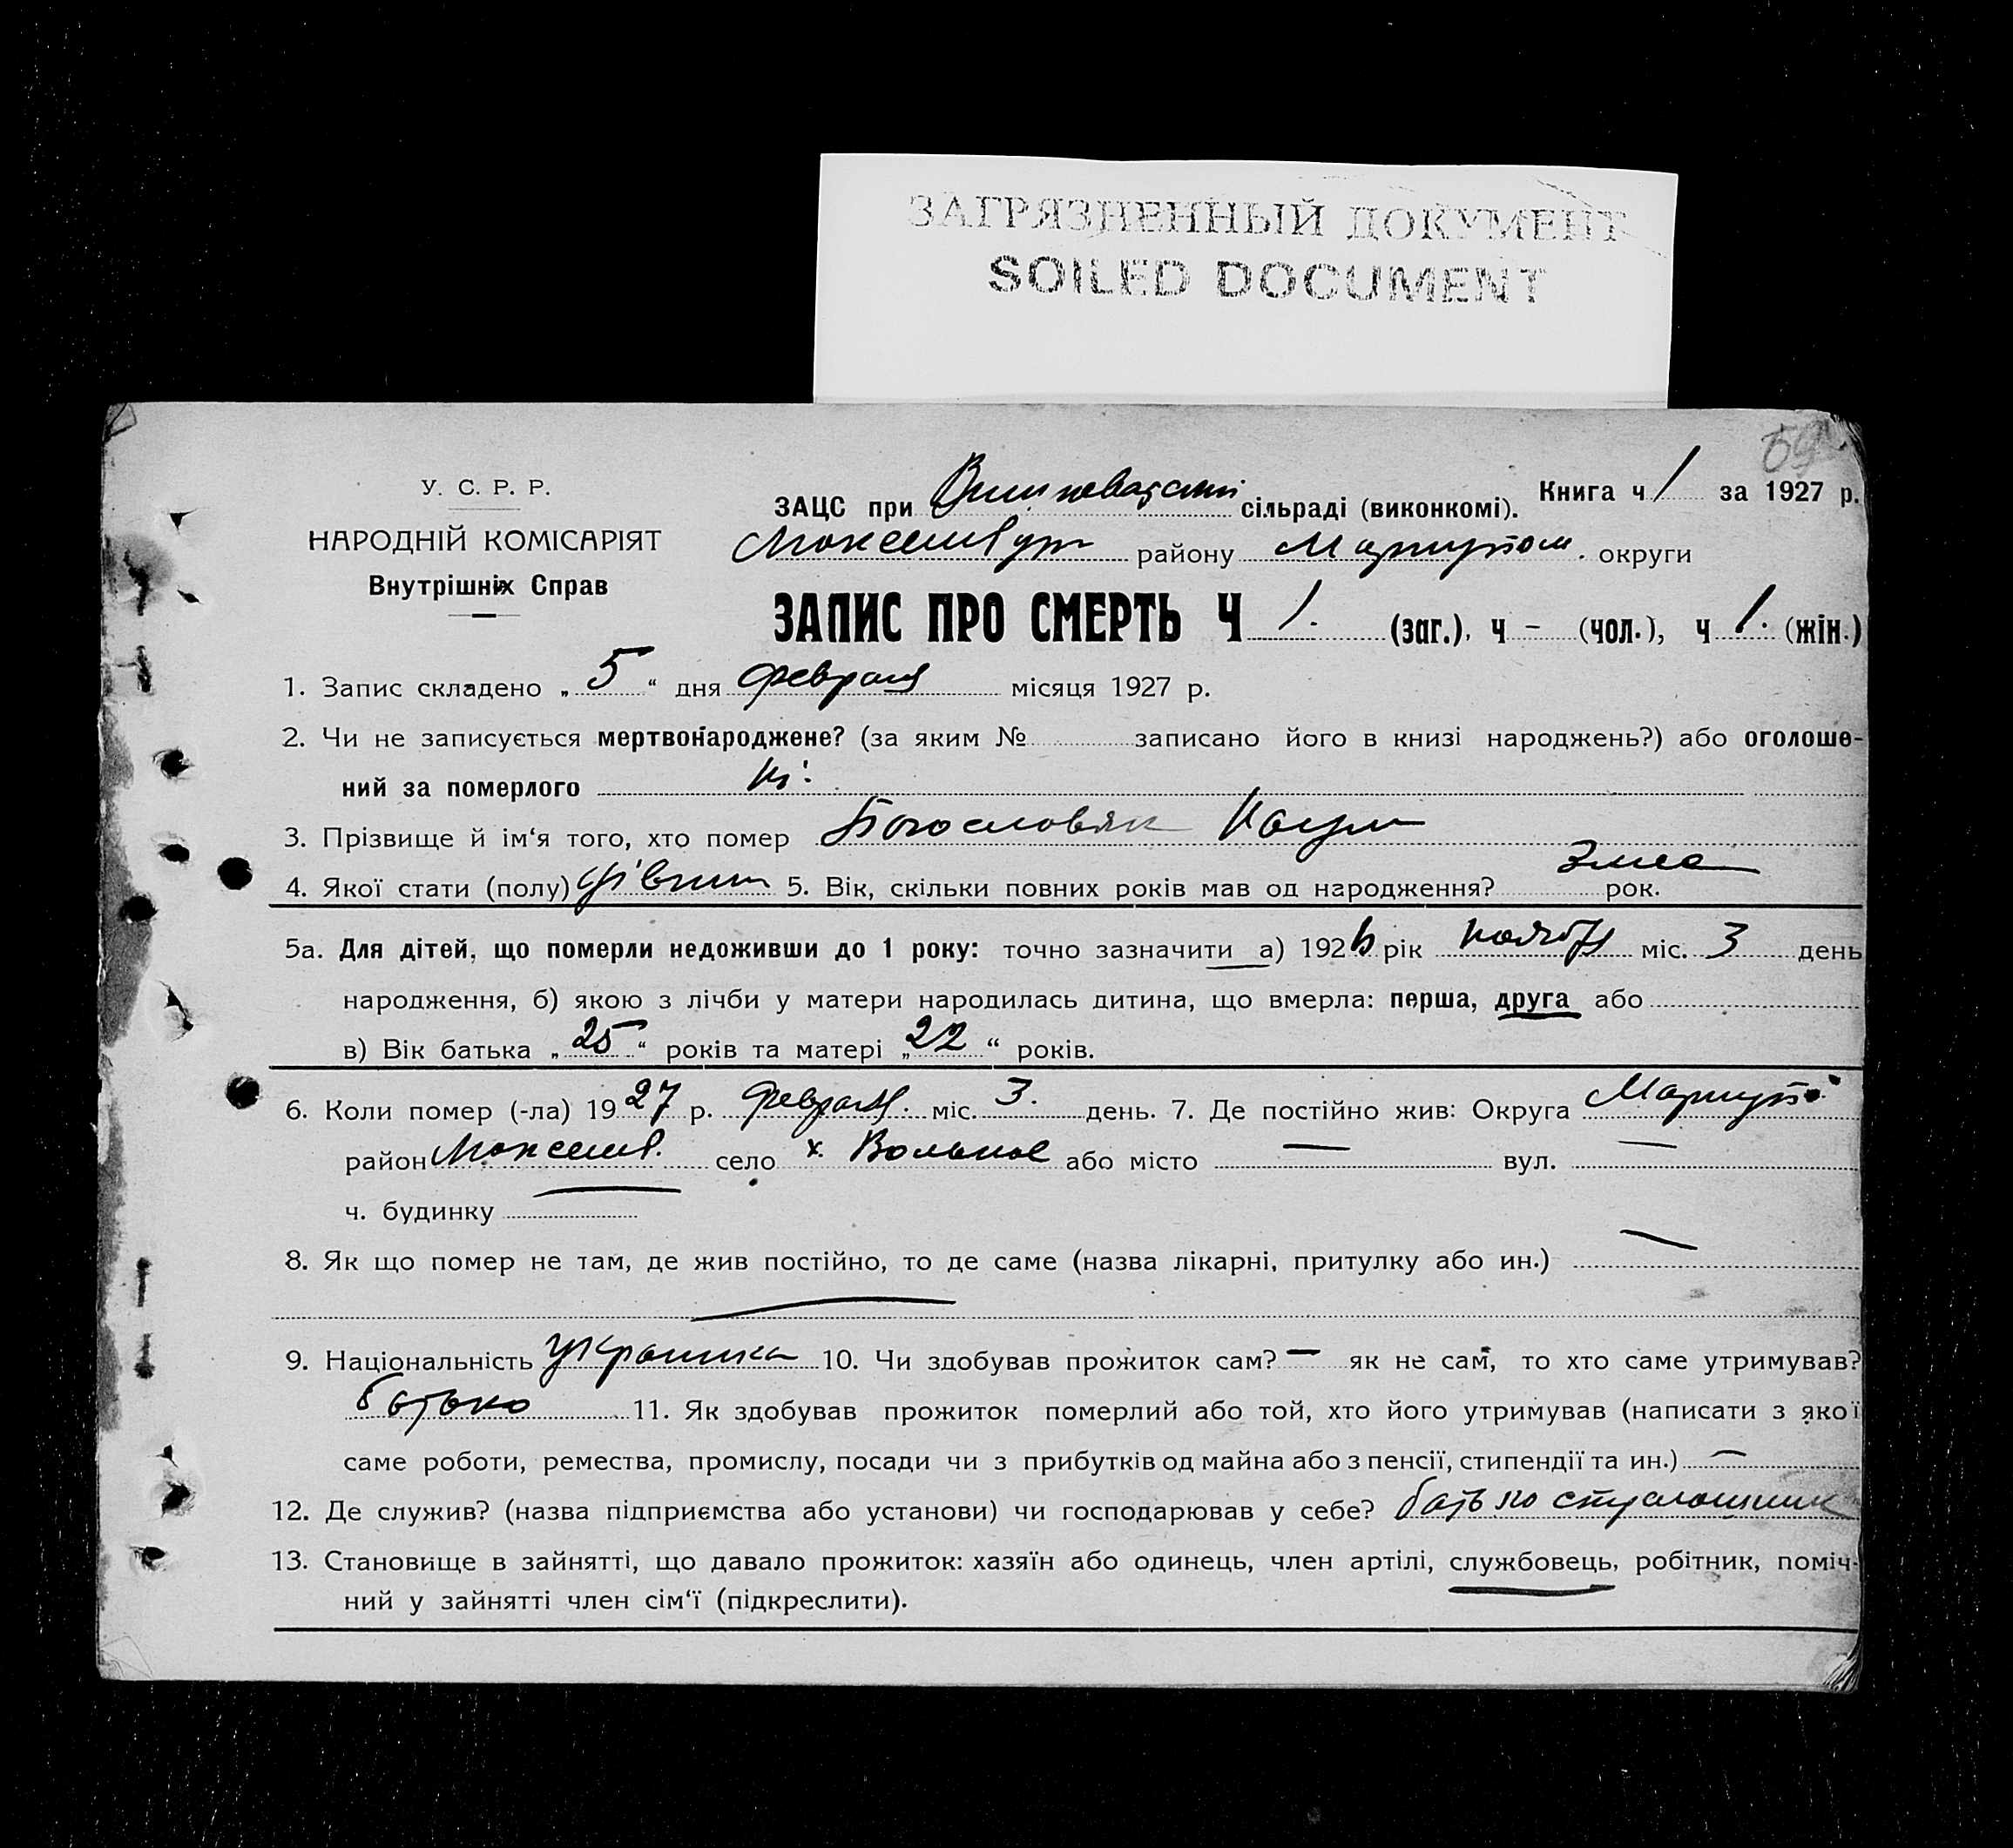 ЗАГРЯЗНЕННЫЙ ДОКУМЕНТ
SOILED DOCUMENT
У. С. Р. Р.
НАРОДНІЙ КОМІСАРІЯТ
Внутрішніх Справ
Книга ч 1 за 1927 р.
ЗАЦС при сільраді (виконкомі).
району округи
ЗАПИС ПРО СМЕРТЬ Ч 1. (заг.), ч – (чол.), ч 1. (жін.)
1. Запис складено „ 5 “ дня февраля місяця 1927 р.
2. Чи не записується мертвонароджене? (за яким № записано його в книзі народжень?) або оголоше-
ний за померлого ні.
3. Прізвище й ім‘я того, хто помер Богословяк
4. Якої стати (полу) 5. Вік, скільки повних років мав од народження? 3 мес рок.
5а. Для дітей, що померли недоживши до 1 року: точно зазначити а) 1926 рік ноября міс. 3 день
народження, б) якою з лічби у матери народилась дитина, що вмерла: перша, друга або
в) Вік батька „ 25 “ років та матері „ 22 “ років.
6. Коли помер (-ла) 1927 р. февраля. міс. 3. день. 7. Де постійно жив: Округа Мариуп
район село х. Вольное або місто — вул. —
ч. будинку
8. Як що помер не там, де жив постійно, то де саме (назва лікарні, притулку або ин.) —
9. Національність украинка 10. Чи здобував прожиток сам? — як не сам, то хто саме утримував?
батько 11. Як здобував прожиток померлий або той, хто його утримував (написати з якої
саме роботи, ремества, промислу, посади чи з прибутків од майна або з пенсії, стипендії та ин.) —
12. Де служив? (назва підприємства або установи) чи господарював у себе? батько
13. Становище в зайнятті, що давало прожиток: хазяїн або одинець, член артілі, службовець, робітник, поміч-
ний у зайнятті член сім‘ї (підкреслити).